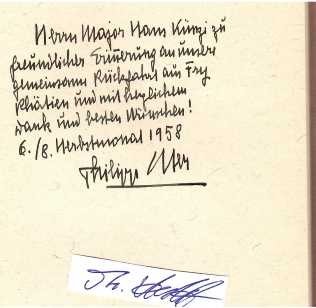 Herrn Major Hans Künzi zu
freundlicher Erinnerung an unsere
gemeinsame Rückfahrt aus Fry
Rhätien und mit herzlichem
Dank und besten Wünschen!
6./8. Herbstmonat 1958
Philipp Etter